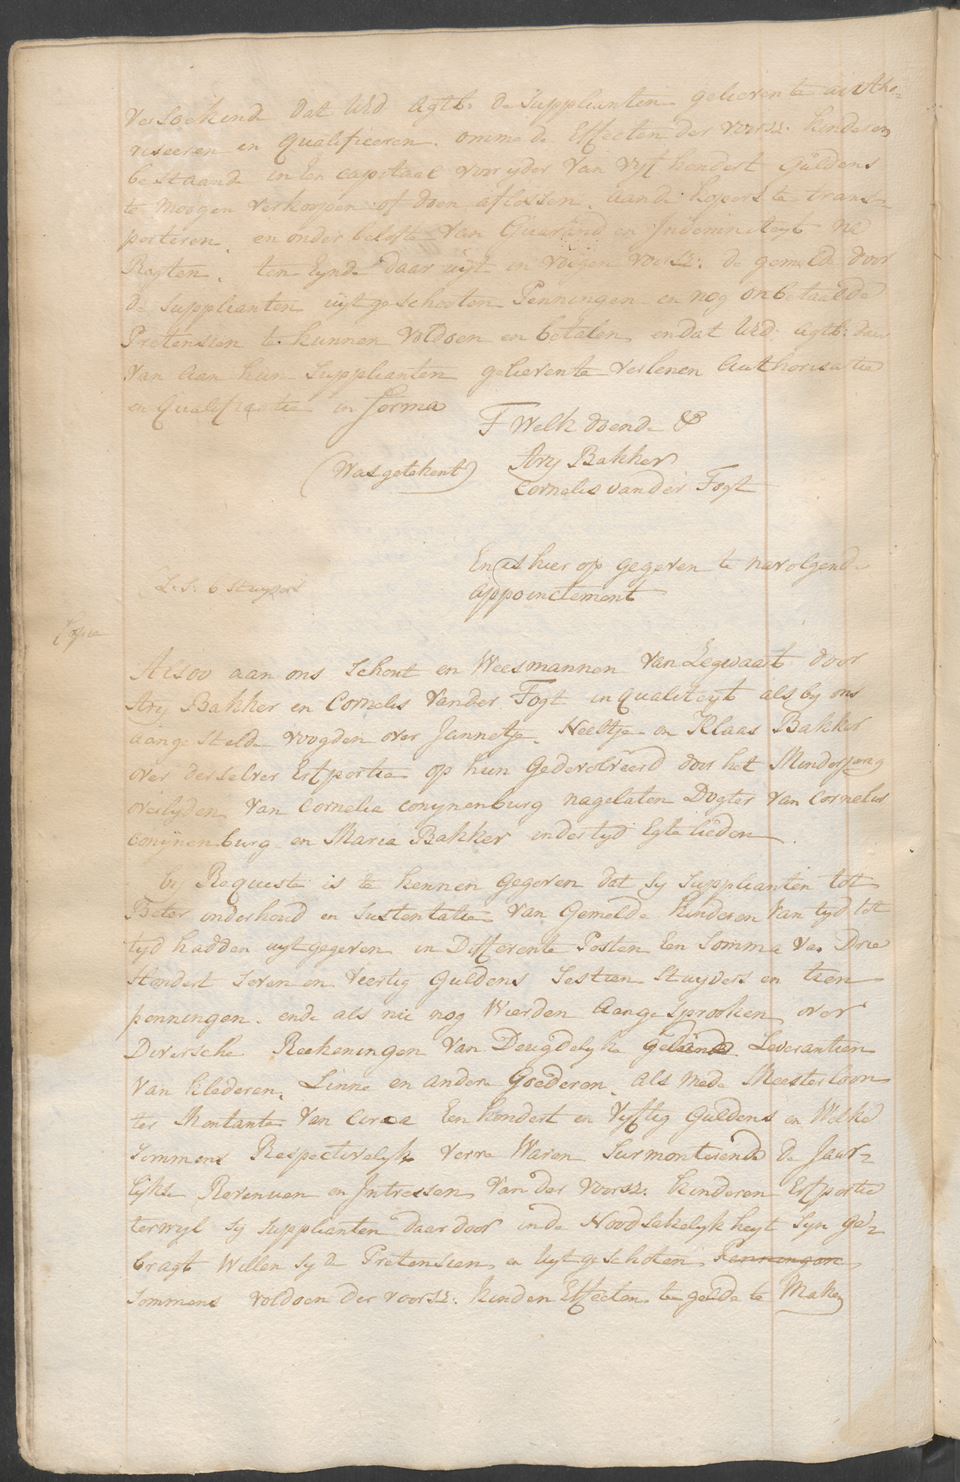 versoekende dat UEd Agtb: de supplianten gelieven te autho-
riseeren en qualificeeren. omme de Effecten der voorsz: kinderen
bestaande in een capitaal voor yder van vyf hondert guldens
te moogen verkoopen of doen aflossen. aan de kopers te trans-
porteren. en onder belofte van Guarand en Indemniteyt na
Regten. ten Eynde daar uyt in voegen voorsz: de gemelde door
de supplianten uytgeschooten Penningen en nog onbetaalde
Pretensien te kunnen voldoen en betalen en dat UEd Agtb: daar
van aan hun supplianten gelieven te verlenen Authorisatie
en Qualificatie in forma
T Welk doende &
(Was getekent) Ary Bakker
Cornelis van der Togt
En is hier op gegeven te navolgende
appoinctement
L. S. 6 stuyvers
Copia
Alsoo aan ons Schout en Weesmannen van Zegwaart door
Ary Bakker en Cornelis vander Togt in qualiteyt als by ons
aangestelde voogden over Jannetje. Neeltje en Klaas Bakker
over derselver Erfportie op hun Gedevolveerd door het Minderjarig
overlyden van Cornelia conynenburg nagelaten Dogter van Cornelis
conynenburg en Maria Bakker in der tyd Egte lieden
by Requeste is te kennen gegeven dat sy supplianten tot
Beter onderhoud en sustentatie van Gemelde kinderen van tyd tot
tyd hadden uytgegeven in Differente Posten Een somma van Drie
Hondert Seven en veertig Guldens Sestien Stuyvers en tien
penningen. ende als nu nog Wierden Aangesprooken over
Diversche Reekeningen van Deugdelyke Leverantien
van klederen. Linne en andere Goederen. als mede Meesterloon
ter Montante van circa Een hondert en vyftig Guldens en Welke
Sommens Respectivelyk verre Waren Surmonterende de Jaar-
lykse Revenuen en Intressen van der voorsz: kinderen Erfportie
terwyl sy supplianten daar door in de Noodsakelykheyt syn ge-
bragt Willen sy de Pretensien en uytgeschoten Penningen
Sommens voldoen der voorsz: kinderen Effecten te gelde te Maken